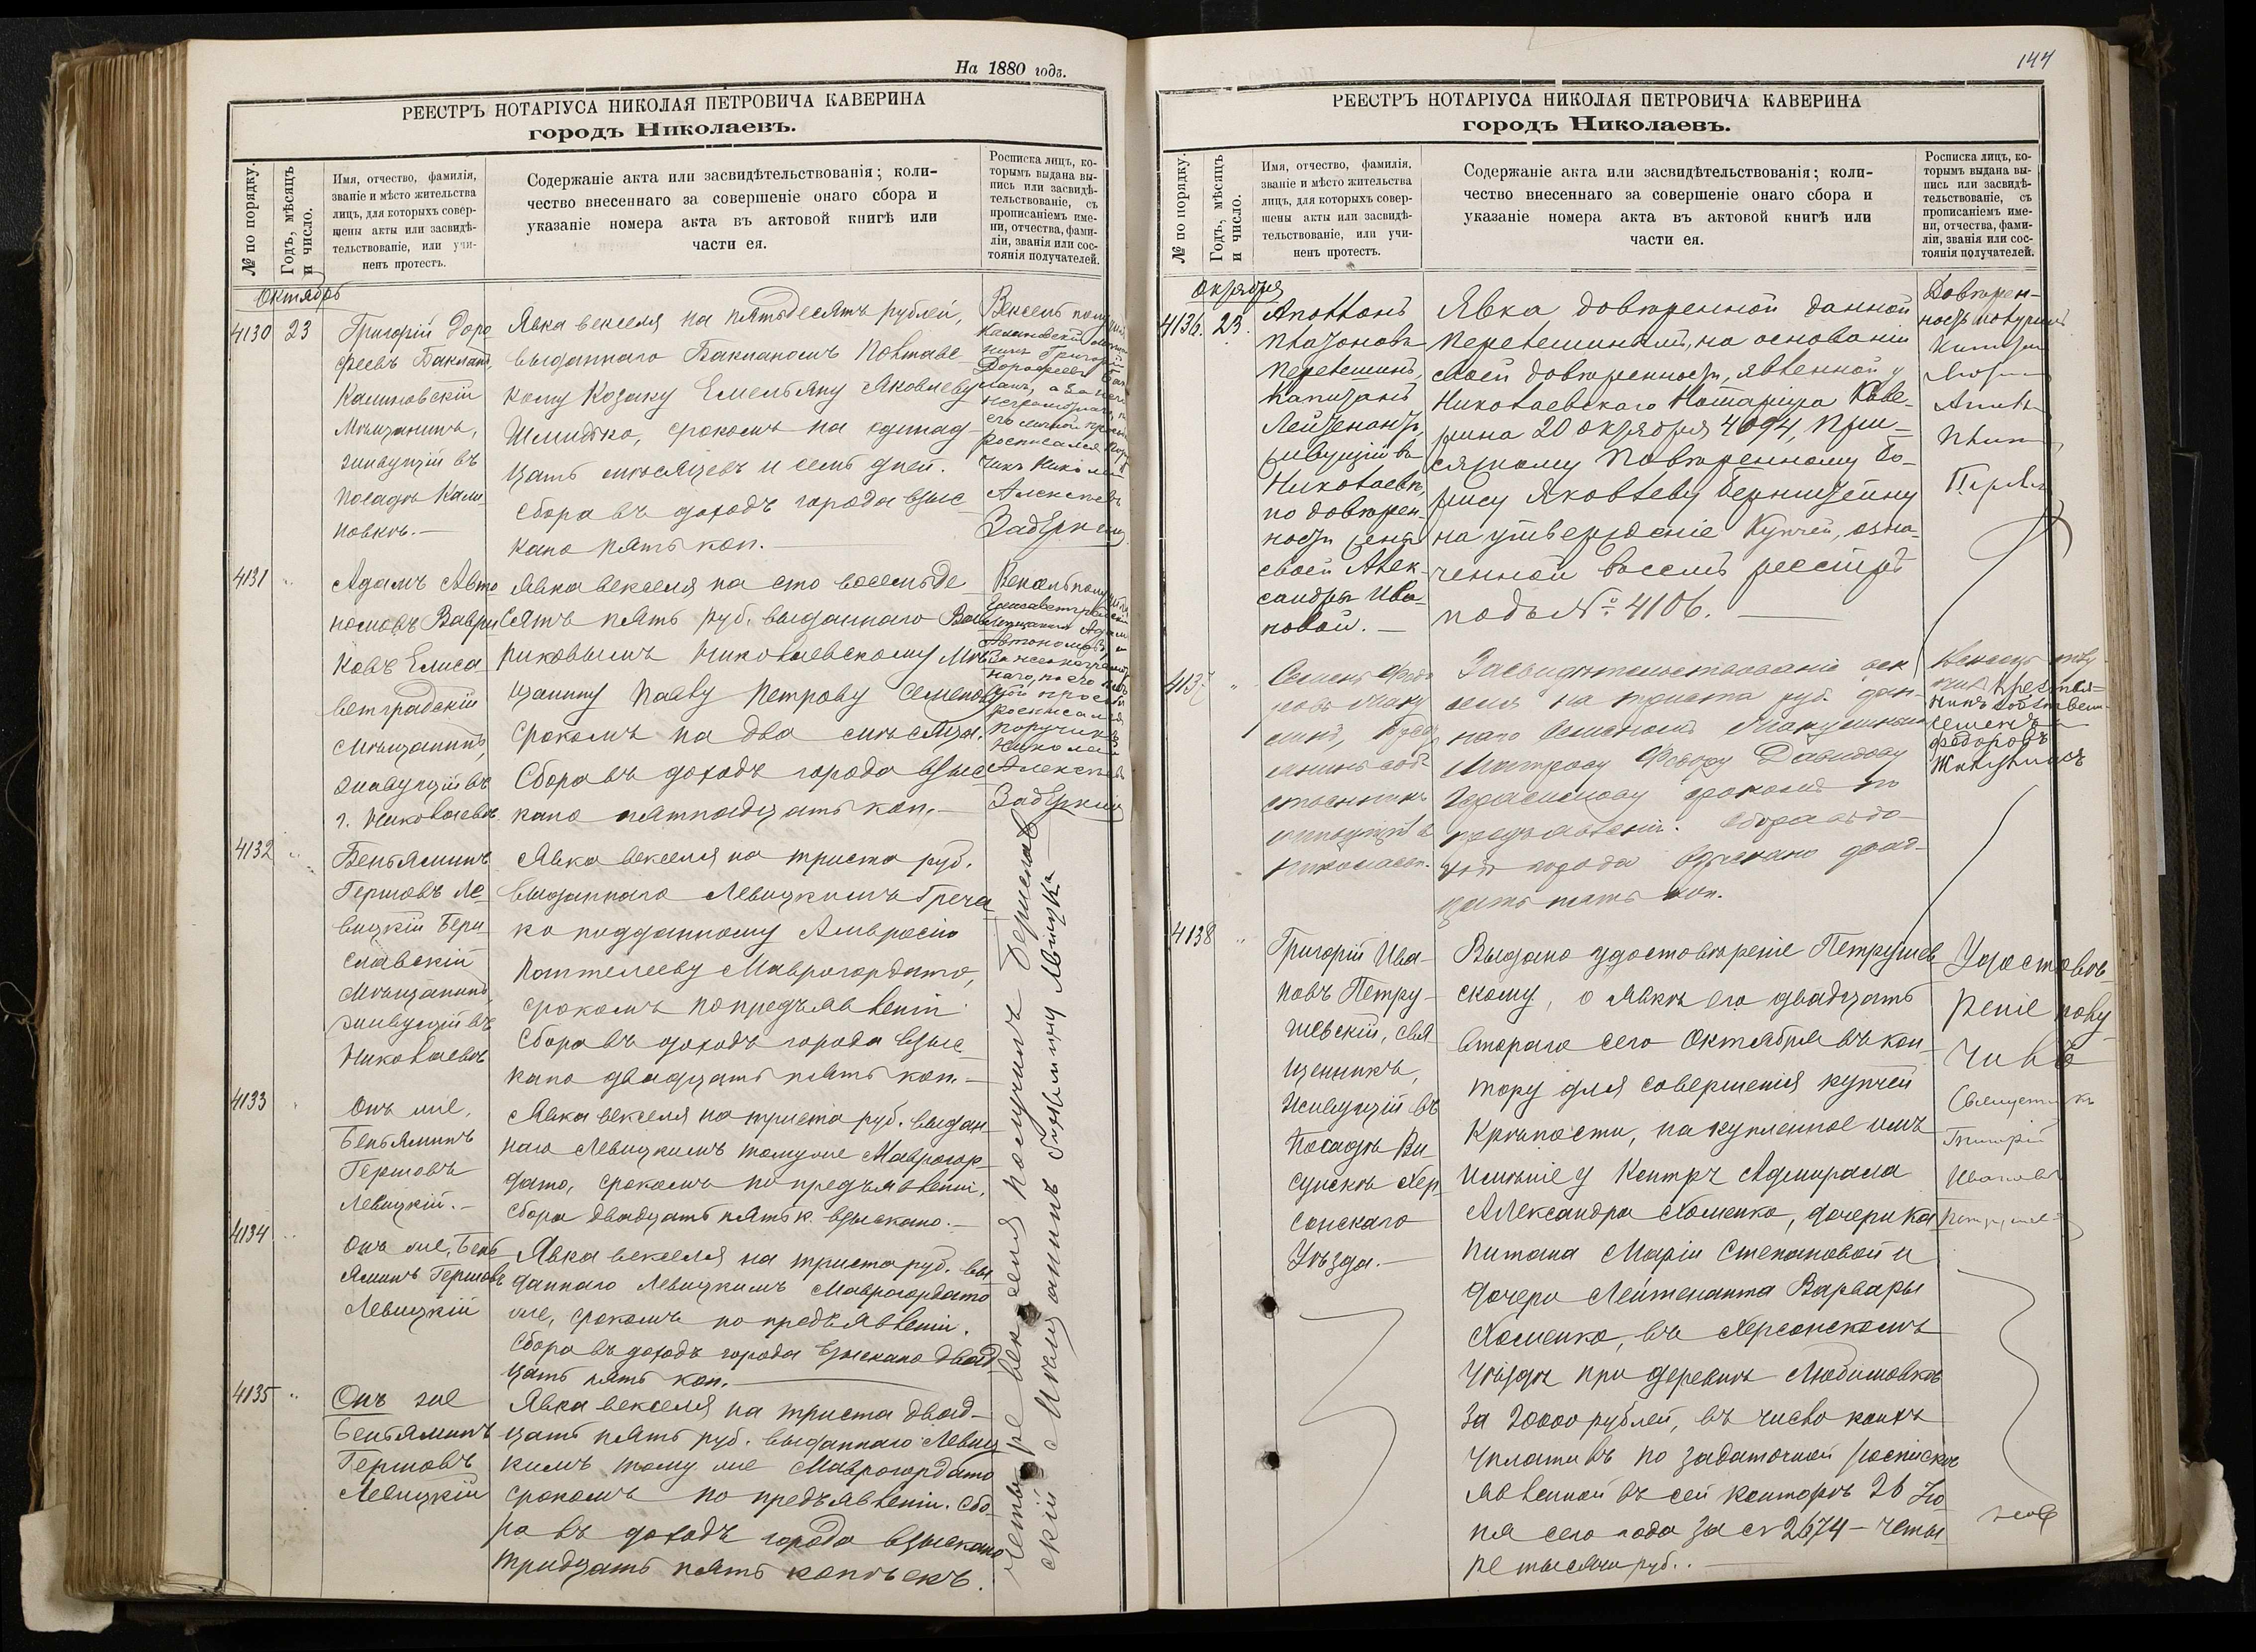 На 1880 годъ.
РЕЕСТРЪ НОТАРІУСА НИКОЛАЯ ПЕТРОВИЧА КАВЕРИНА
городъ Николаевъ.
№ по порядку.
Годъ, мѣсяцъ
и число.
Имя, отчество, фамилія,
званіе и мѣсто жительства
лицъ, для которыхъ совер-
шены акты или засвидѣ-
тельствованіе, или учи-
ненъ протестъ.
Содержаніе акта или засвидѣтельствованія; коли-
чество внесеннаго за совершеніе онаго сбора и
указаніе номера акта въ актовой книгѣ или
части ея.
Росписка лицъ, ко-
торымъ выдана вы-
пись или засвидѣ-
тельствованіе, съ
прописаніемъ име-
ни, отчества, фами-
ліи, званія или сос-
тоянія получателей.
Октябрь
4130 23
Григорій Доро
феевъ Бакланъ,
Калиновскій
Мѣщанинъ,
живущій въ
посадѣ Кали
новкѣ.—
Явка векселя на пятьдесятъ рублей,
выданнаго Бакланомъ Полтавс
кому Козаку Емельяну Яковлеву
Шмидько, срокомъ на одинад
цать мѣсяцевъ и семь дней.
Сбора въ доходъ города взыс
кано пять коп.—
Вексель
Калиновскій
Григор
Дорофеевъ
росписался
Никола
Алексѣевъ
4131 "
Адамъ Авто
номовъ Ваври
ковъ Елиса
ветградскій
Мѣщанинъ,
живущій въ
г. Николаевѣ
Явка векселя на сто восемьде
сятъ пять руб. выданнаго Вав
риковымъ Николаевскому Мѣ
щанину Павлу Петрову Семенову
Срокомъ на два мѣсяца.
Сбора въ доходъ города взыс
кано пятнадцать коп.—
Вексель
Елисаветград
Автономовъ
росписался
поручикъ
Николай
Алексѣевъ
4132 "
Беньяминъ
Гершовъ Ле-
вицкій Бери
славскій
Мѣщанинъ,
живущій въ
Николаевѣ
Явка векселя на триста руб.
выданнаго Левицкимъ Греческо
ко подданному Амвросію
Пантелееву Маврогордато,
срокомъ по предъявленіи.
Сбора въ доходъ города взыс
кано двадцать пять коп.—
4133 "
Онъ же,
Беньяминъ
Гершовъ
Левицкій.—
Явка векселя на триста руб. выдан-
наго Левицкимъ тому же Маврогор-
дато, срокомъ по предъявленіи,
Сбора двадцать пять к. взыскано.—
4134 "
Онъ же, Бень
яминъ Гершовъ
Левицкій
Явка векселя на триста руб. вы
даннаго Левицкимъ Маврогордато
же, срокомъ по предъявленіи.
Сбора въ доходъ города взыскано двад
цать пять коп.—
4135 "
Онъ же
Беньяминъ
Гершовъ
Левицкій
Явка векселя на триста двад-
цать пять руб. выданнаго Левиц
кимъ тому же Маврогордато
срокомъ по предъявленіи. Сбо-
ра въ доходъ города взыскано
тридцать пять копѣекъ.
четыре векселя получилъ Бериславс
скій Мѣщанинъ
144
РЕЕСТРЪ НОТАРІУСА НИКОЛАЯ ПЕТРОВИЧА КАВЕРИНА
городъ Николаевъ.
№ по порядку.
Годъ, мѣсяцъ
и число.
Имя, отчество, фамилія,
званіе и мѣсто жительства
лицъ, для которыхъ совер-
шены акты или засвидѣ-
тельствованіе, или учи-
ненъ протестъ.
Содержаніе акта или засвидѣтельствованія; коли-
чество внесеннаго за совершеніе онаго сбора и
указаніе номера акта въ актовой книгѣ или
части ея.
Росписка лицъ, ко-
торымъ выдана вы-
пись или засвидѣ-
тельствованіе, съ
прописаніемъ име-
ни, отчества, фами-
ліи, званія или сос-
тоянія получателей.
Октября
4136. 23.
Аполлонъ
Платоновъ
Перелешинъ,
Капитанъ
Лейтенантъ,
живущій въ
Николаевѣ,
по довѣрен-
ности жены
своей Алек-
сандры Ива-
новой.—
Явка довѣренной данной
Перелешинымъ, на основаніи
своей довѣренности, явленной у
Николаевскаго Нотаріуса Каве-
рина 20 Октября 4094, При-
сяжному Повѣренному Бо-
рису Яковлеву Бернштейну
на утвержденіе Купчей, озна-
ченной въ семъ реестрѣ
подъ № 4106.—
Довѣрен-
ность получилъ
Капитан
4137 "
Семенъ Федо
ровъ
живущій в
Николаев.
Засвидѣтельствованіе век
селя на триста руб. дан-
наго Семеномъ
Матросу Федору Давидову
Герасимову срокомъ по
предъявленіи. Сбора въ до-
ходъ города взыскано двад-
цать пять коп.
Вексель полу
чилъ Крестья=
нинъ собственн
Семенъ
Федоровъ
4138 "
Григорій Ива-
новъ Петру-
шевскій, свя
щенникъ,
Живущій въ
Посадѣ Ви-
сунскѣ Хер
сонскаго
Уѣзда.—
Выдано удостовѣреніе Петрушев
скому, о явкѣ его двадцать
втораго сего Октября въ кон
тору для совершенія купчей
Крѣпости, на купленное имъ
имѣніе у Контръ Адмирала
Александра Хоменко, дочери Ка
питана Маріи Степановой и
дочери Лейтенанта Варвары
Хоменко, въ Херсонскомъ
Уѣздѣ при деревнѣ Любимовкѣ
за 20000 рублей, въ число коихъ
уплативъ по задаточной роспискѣ
явленной въ сей конторѣ 26 Iю
ня сего года за № 2674 – четы
ре тысячи руб..—
Удостовѣ
реніе полу
чилъ
Священникъ
Григорій
Ивановъ